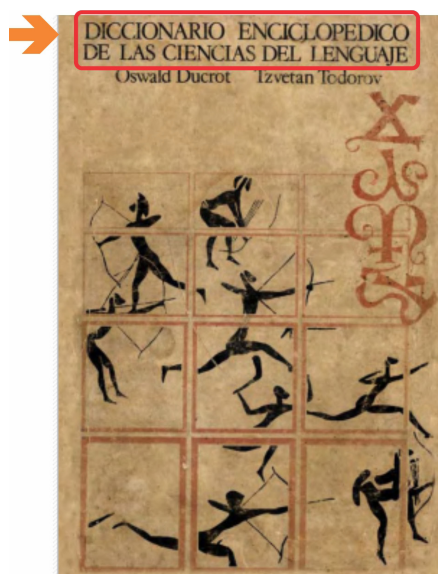 DICCIONARIO ENCICLOPEDICO
DE LAS CIENCIAS DEL LENGUAJE
Oswald Ducrot Tzvetan Todorov